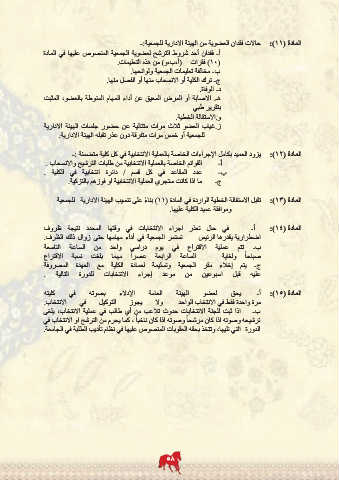 المادة (١١): حالات فقدان العضوية من الهيئة الادارية للجمعية:ـ
أ. فقدان أحد شروط الترشح لعضوية الجمعية المنصوص عليها في المادة
(١٠) فقرات (أ،ب،و) من هذه التعليمات.
ب. مخالفة تعليمات الجمعية ولوائحها.
ج. ترك الكلية أو الانسحاب منها أو الفصل منها.
د. الوفاة.
هـ. الاصابة أو المرض المعيق عن أداء المهام المنوطة بالعضو، المثبت
بتقارير طبي
و. الاستقالة الخطية.
ز. غياب العضو ثلاث مرات متتالية عن حضور جلسات الهيئة الادارية
للجمعية أو خمس مرات متفرقة دون عذر تقبله الهيئة الادارية.
المادة (١٢): يزود العميد بكامل الإجراءات الخاصة بالعملية الانتخابية في كل كلية متضمنة :ـ
أ. القوائم الخاصة بالعملية الانتخابية من طلبات الترشيح والانسحاب .
ب. عدد المقاعد في كل قسم / دائرة انتخابية في الكلية .
ج. ما اذا كانت ستجري العملية الانتخابية أو فوزهم بالتزكية
المادة (١٣): تقبل الاستقالة الخطية الواردة في المادة (١١) بناءً على تنسيب الهيئة الادارية للجمعية
وموافقة عميد الكلية عليها.
المادة (١٤): أ. في حال تعذر اجراء الانتخابات في وقتها المحدد نتيجة ظروف
اضطرارية يقدرها الرئيس تستمر الجمعية في أداء مهامها حتى زوال تلك الظرف.
ب. تتم عملية الاقتراع في يوم دراسي واحد من الساعة التاسعة
صباحاً ولغاية الساعة الرابعة عصراً مهما بلغت نسبة الاقتراع
ج. يتم إخلاء مقر الجمعية وتسليمه لعمادة الكلية مع العهدة المصروفة
عليه قبل اسبوعين من موعد إجراء الانتخابات للدورة التالية .
المادة (١٥): أ. يحق لعضو الهيئة العامة الإدلاء بصوته في كليته
مرة واحدة فقط في الانتخاب الواحد ولا يجوز التوكيل في الانتخاب.
ب. اذا ثبت للجنة الانتخابات حدوث تلاعب من أي طالب في عملية الانتخاب، يلغى
ترشيحه وصوته اذا كان مرشحاً وصوته إذا كان ناخباً ، كما يحرم من الترشيح او الانتخاب في
الدورة التي تليها، وتتخذ بحقه العقوبات المنصوص عليها في نظام تأديب الطلبة في الجامعة.